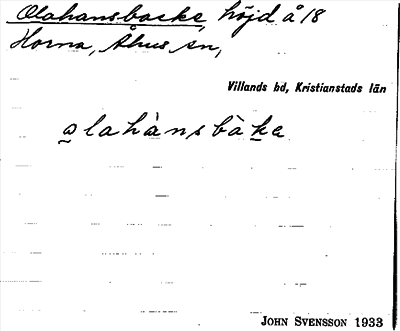 Olahansbacke, höjd å 18
Horna, Åhus sn,
Villands hd, Kristianstads län
o̲lahànsbàk̲e
JOHN SVENSSON 1933